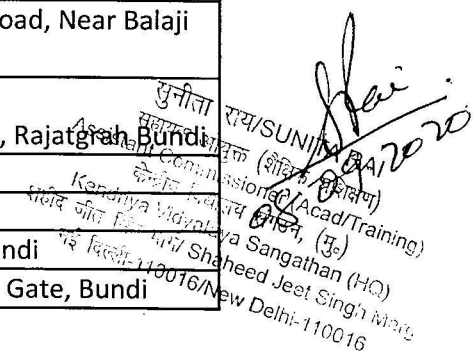 oad, Near Balaji
, Rajatgrah Bundi
ndi
Gate, Bundi
सुनीता राय/SUNITA RAI
सहायक आयुक्त (शैक्षिक/प्रशिक्षण)
Assistant Commissioner (Acad/Training)
केन्द्रीय विद्यालय संगठन, (मु.)
Kendriya Vidyalaya Sangathan (HQ)
शहीद जीत सिंह मार्ग/ Shaheed Jeet Singh Marg
नई दिल्ली-110016/New Delhi-110016